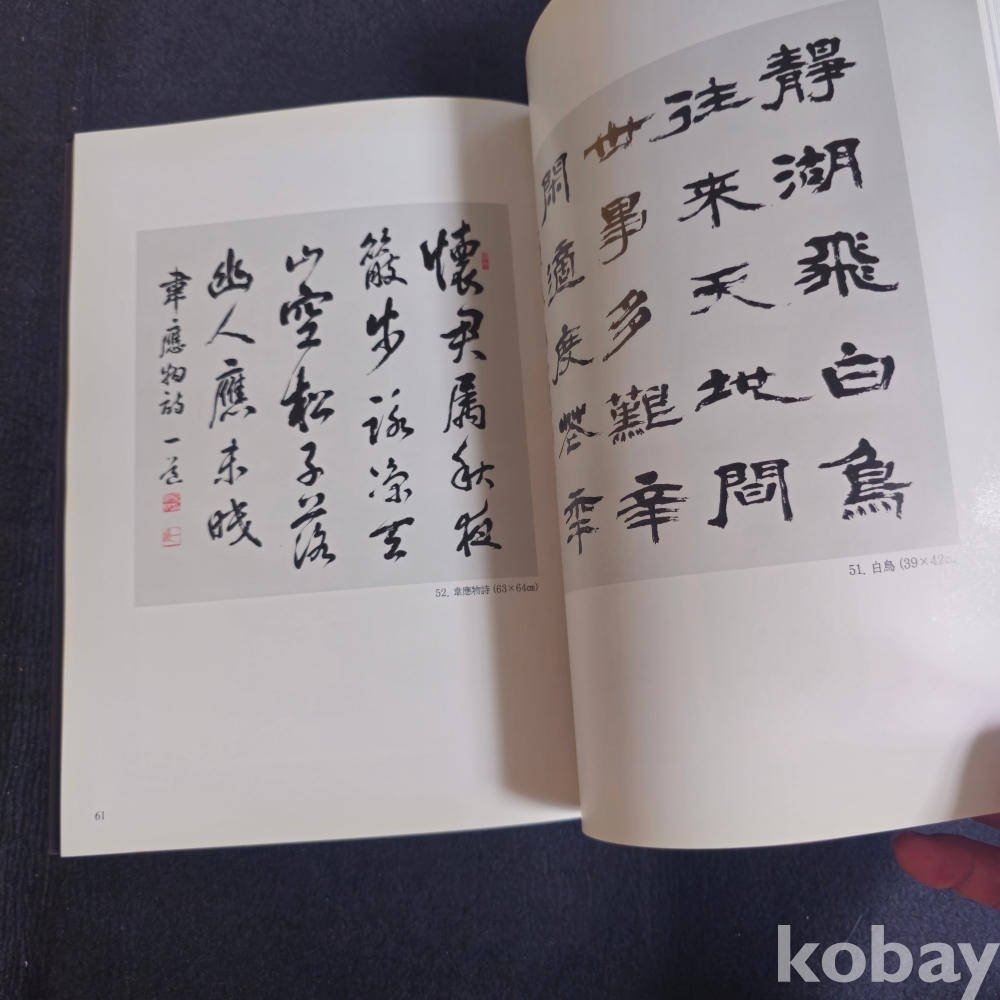 靜湖飛白鳥
往來天地間
世事多難辛
閑適度
51. 白鳥 (39×42㎝)
懷君屬秋夜
散步詠凉天
山空松子落
幽人應未眠
韋應物詩 一
52. 韋應物詩 (63×64㎝)
61
kobay